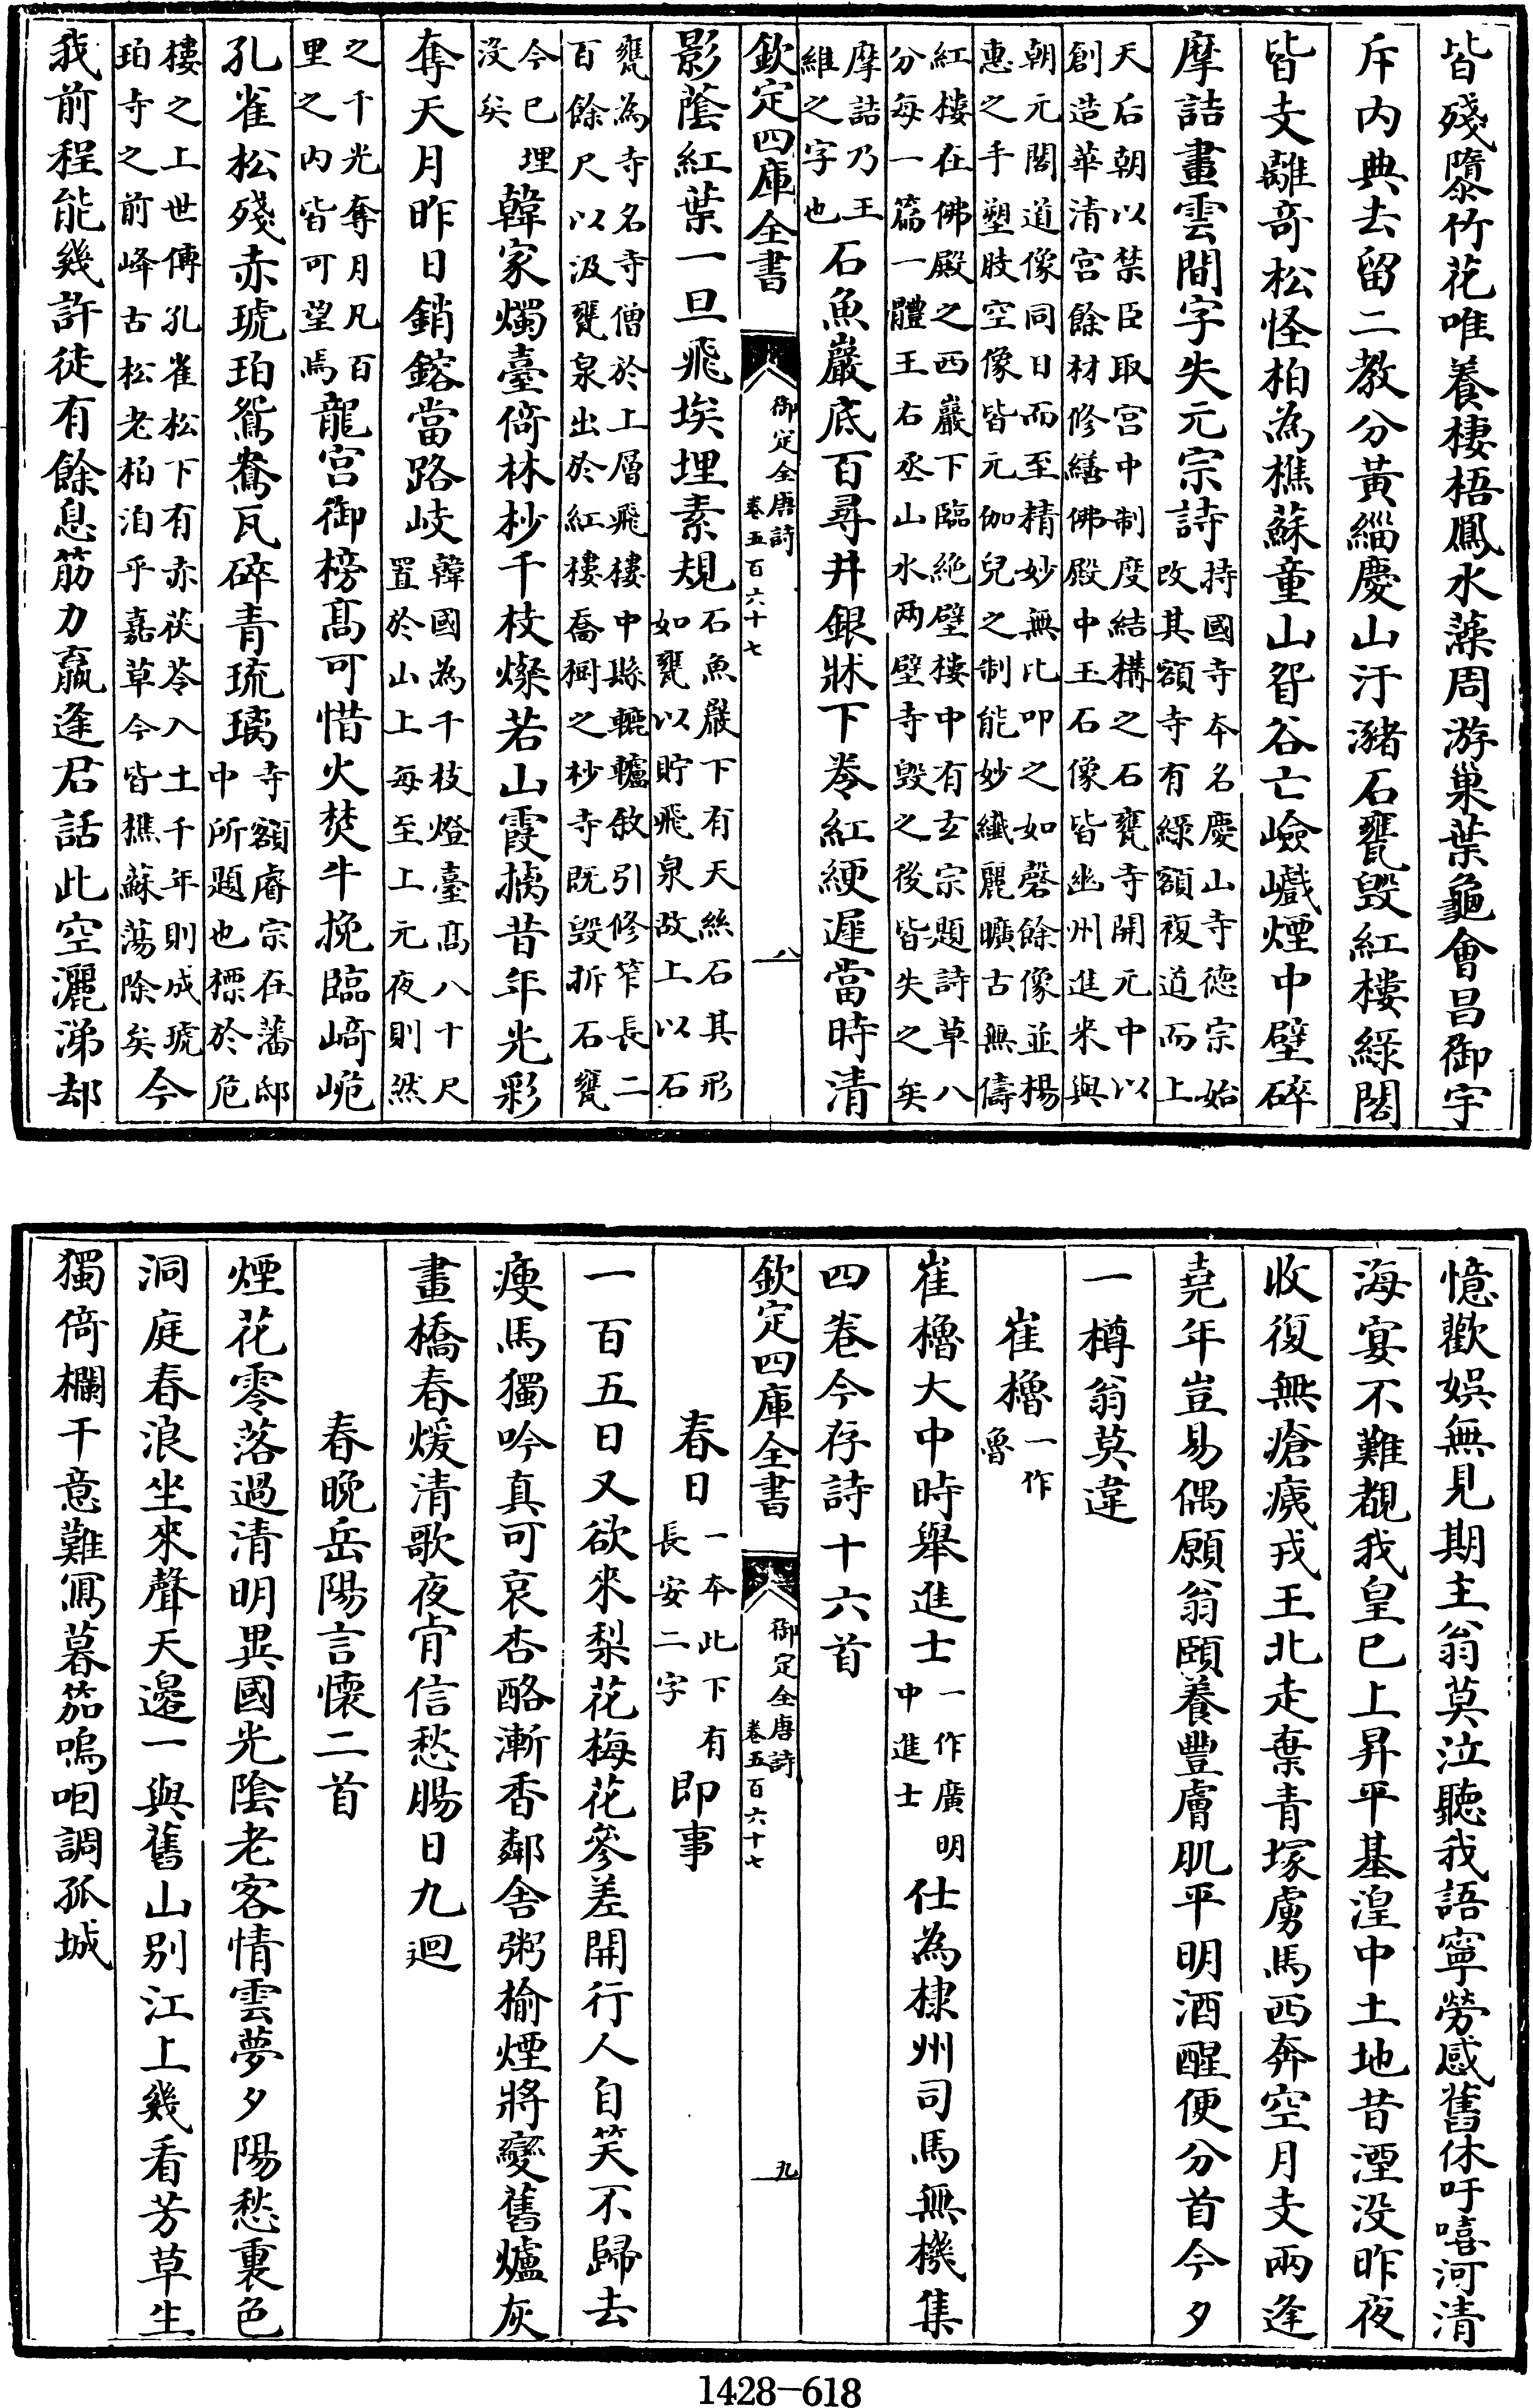 皆殘隳竹花唯養棲梧鳳水藻周游巢葉龜會昌御宇
斥内典去留二教分黃緇慶山汙瀦石甕毀紅樓綠閣
皆支離奇松怪柏為樵蘇童山眢谷亡嶮巇煙中壁碎
摩詰畫雲間字失元宗詩持國寺本名慶山寺德宗始改其額寺有綠額複道而上
天后朝以禁臣取宫中制度結構之石甕寺開元中以創造華清宫餘材修繕佛殿中玉石像皆幽州進来與
朝元閣道像同日而至精妙無比叩之如磬餘像並楊惠之手塑肢空像皆元伽兒之制能妙纎麗曠古無儔
紅樓在佛殿之西巖下臨絶壁樓中有玄宗題詩草八分每一篇一體王右丞山水两壁寺毀之後皆失之矣
摩詰乃王維之字也石魚巖底百尋井銀牀下卷紅綆遲當時清
欽定四庫全書
御定全唐詩
卷五百六十七
八
影蔭紅葉一旦飛埃埋素規石魚巖下有天絲石其形如甕以貯飛泉故上以石
甕為寺名寺僧於上層飛樓中縣轆轤敘引修笮長二百餘尺以汲甕泉出於紅樓喬樹之杪寺既毀拆石甕
今已埋没矣韓家燭臺倚林杪千枝燦若山霞摛昔年光彩
奪天月昨日銷鎔當路岐韓國為千枝燈臺高八十尺置於山上每至上元夜則然
之千光奪月凡百里之内皆可望焉龍宫御榜髙可惜火焚牛挽臨﨑峗
孔雀松殘赤琥珀鴛鴦瓦碎青琉璃寺額睿宗在藩邸中所題也摽於危
樓之上世傳孔雀松下有赤茯苓入土千年則成琥珀寺之前峰古松老柏洎乎嘉草今皆樵蘇蕩除矣今
我前程能幾許徒有餘息筋力羸逢君話此空灑涕却
憶歡娱無見期主翁莫泣聽我語寧勞感舊休吁嘻河清
海宴不難覩我皇已上昇平基湟中土地昔湮没昨夜
收復無瘡痍戎王北走棄青塚虜馬西奔空月支兩逢
堯年豈易偶願翁頤養豐膚肌平明酒醒便分首今夕
一樽翁莫違
崔櫓一作魯
崔櫓大中時舉進士一作廣明中進士仕為棣州司馬無機集
四卷今存詩十六首
欽定四庫全書
御定全唐詩
卷五百六十七
九
春日一本此下有長安二字即事
一百五日又欲來梨花梅花參差開行人自笑不歸去
瘦馬獨吟真可哀杏酪漸香鄰舍粥榆煙將變舊爐灰
畫橋春煖清歌夜肯信愁腸日九迴
春晚岳陽言懷二首
煙花零落過清明異國光陰老客情雲夢夕陽愁裏色
洞庭春浪坐來聲天邉一與舊山别江上幾看芳草生
獨倚欄干意難寫暮笳嗚咽調孤城
1428-618